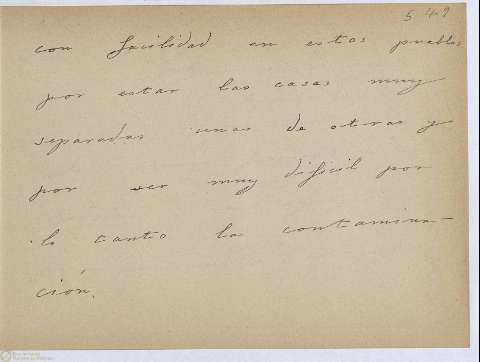 549
con facilidad en estos pueblos
por estar las casas muy
separadas unas de otras y
por ser muy dificil por
lo tanto la contamina-
ción.